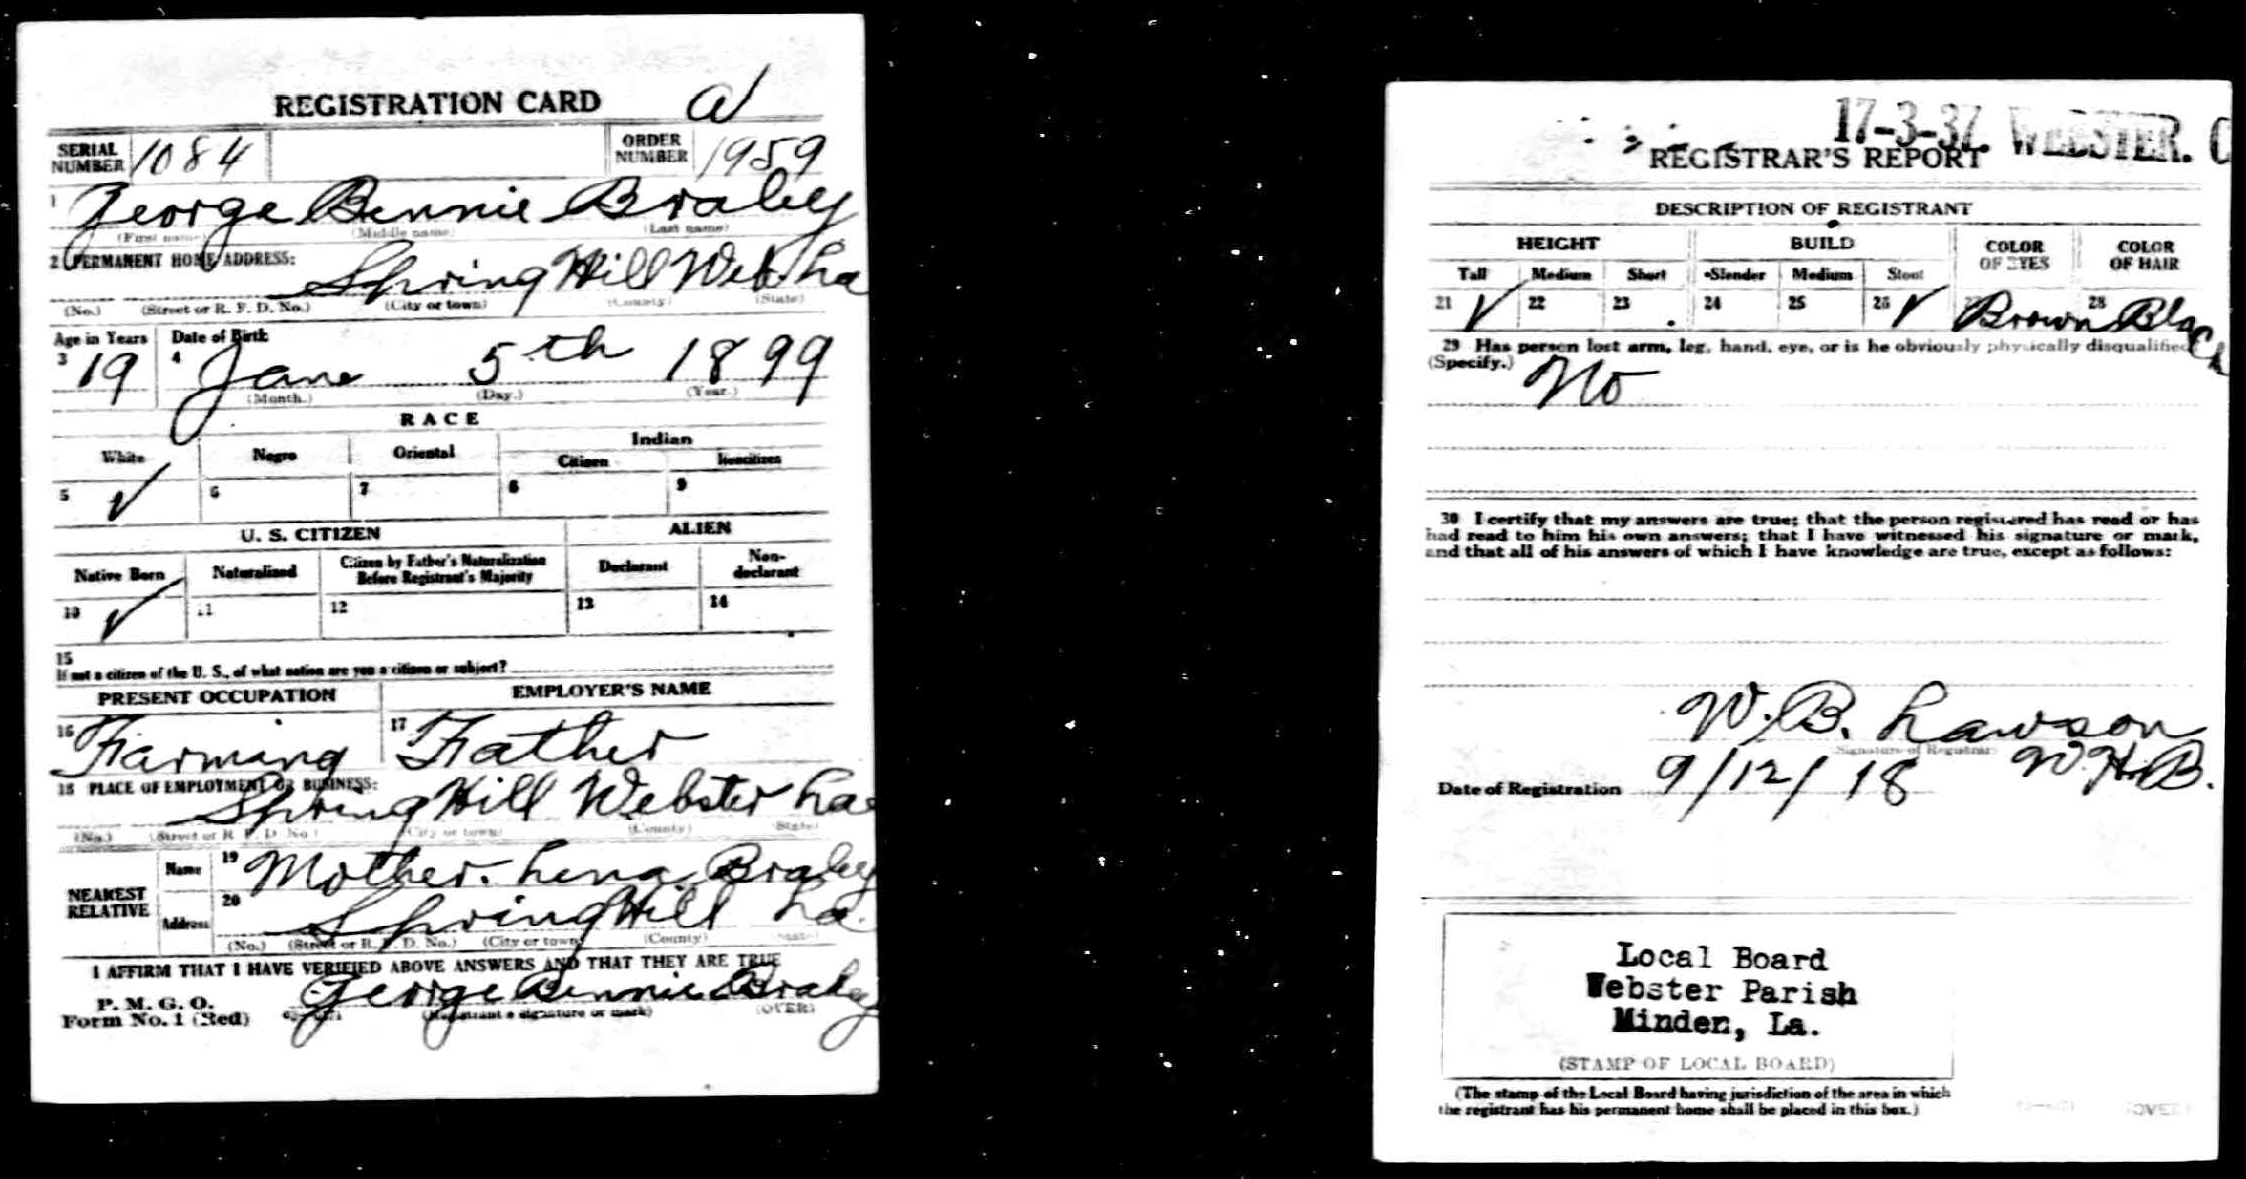 REGISTRATION CARD
SERIAL NUMBER 1084 ORDER NUMBER 1959
1 George Bennie Braley
(First name) (Middle name) (Last name)
2 PERMANENT HOME ADDRESS:
Spring Hill Web. La
(No.) (Street or R. F. D. No.) (City or town) (County) (State)
Age in Years Date of Birth
3 19 4 Jane 5th 1899
(Month.) (Day.) (Year.)
RACE
White Negro Oriental Indian
Citizen Noncitizen
5 ✓ 6 7 8 9
U. S. CITIZEN ALIEN
Native Born Naturalized Citizen by Father's Naturalization Before Registrant's Majority Declarant Non-declarant
10 ✓ 11 12 13 14
15
If not a citizen of the U. S., of what nation are you a citizen or subject?
PRESENT OCCUPATION EMPLOYER'S NAME
16 Farming 17 Father
18 PLACE OF EMPLOYMENT OR BUSINESS:
Spring Hill Webster La
(No.) (Street or R. F. D. No.) (City or town) (County) (State)
NEAREST RELATIVE
Name 19 Mother. Lena Braley
Address 20 Spring Hill La.
(No.) (Street or R. F. D. No.) (City or town) (County) (State)
I AFFIRM THAT I HAVE VERIFIED ABOVE ANSWERS AND THAT THEY ARE TRUE
P. M. G. O.
Form No. 1 (Red) George Bennie Braley
(Registrant's signature or mark) (OVER)
17-3-37. WEBSTER. C
REGISTRAR'S REPORT
DESCRIPTION OF REGISTRANT
HEIGHT BUILD COLOR OF EYES COLOR OF HAIR
Tall Medium Short Slender Medium Stout
21 ✓ 22 23 24 25 26 ✓ 27 Brown 28 Black
29 Has person lost arm, leg, hand, eye, or is he obviously physically disqualified?
(Specify.) No
30 I certify that my answers are true; that the person registered has read or has
had read to him his own answers; that I have witnessed his signature or mark,
and that all of his answers of which I have knowledge are true, except as follows:
W. B. Lawson
(Signature of Registrar) W.H.B.
Date of Registration 9/12/18
Local Board
Webster Parish
Minden, La.
(STAMP OF LOCAL BOARD)
(The stamp of the Local Board having jurisdiction of the area in which
the registrant has his permanent home shall be placed in this box.)